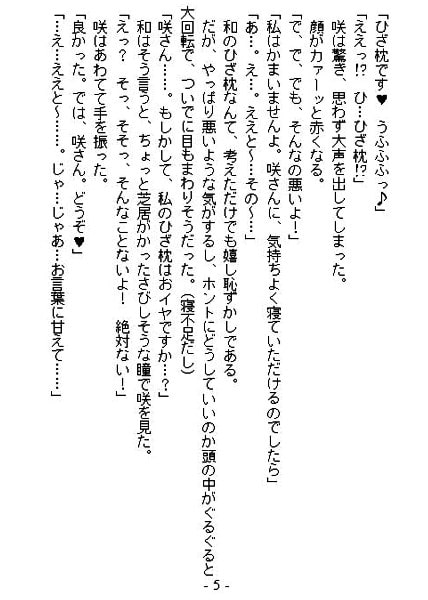 「ひざ枕です♥　うふふふっ♪」
「ええっ!?　ひ…ひざ枕!?」
　咲は驚き、思わず大声を出してしまった。
　顔がカァーッと赤くなる。
「で、で、でも、そんなの悪いよ！」
「私はかまいませんよ。咲さんに、気持ちよく寝ていただけるのでしたら」
「あ…。え…。ええと～…その～…」
　和のひざ枕なんて、考えただけでも嬉し恥ずかしである。
　だが、やっぱり悪いような気がするし、ホントにどうしていいのか頭の中がぐるぐると
大回転で、ついでに目もまわりそうだった。（寝不足だし）
「咲さん……。もしかして、私のひざ枕はおイヤですか…？」
　和はそう言うと、ちょっと芝居がかったさびしそうな瞳で咲を見た。
「えっ？　そっ、そそっ、そんなことないよ！　絶対ない！」
　咲はあわてて手を振った。
「良かった。では、咲さん。どうぞ♥」
「…え…ええと～……。じゃ…じゃあ…お言葉に甘えて……」
- 5 -